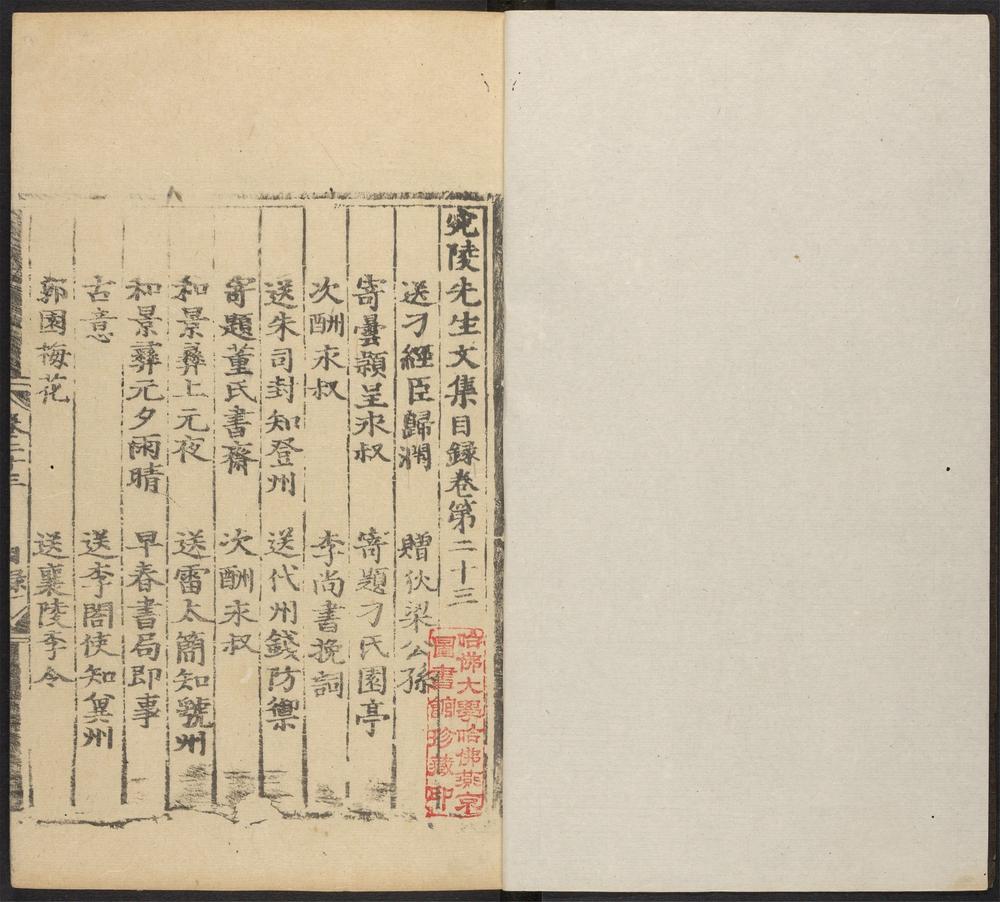 宛陵先生文集目録卷第二十三
送刁經臣歸潤 贈狄梁公孫
寄曇頴呈永叔 寄題刁氏園亭
次酬永叔 李尚書挽詞
送朱司封知登州 送代州錢防禦
寄題董氏書齋 次酬永叔
和景彝上元夜 送雷太簡知虢州
和景彝元夕雨晴 早春書局即事
古意 送李閤使知兾州
郭園梅花 送襄陵李令
卷二十三 目録
哈佛大學哈佛燕京
圖書館珍藏印